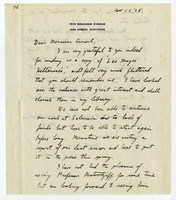 Nov. 15, '38.
ANN ARBOR, MICHIGAN
Dear Monsieur Cumont,
I am very grateful to you indeed
for sending us a copy of "Les Mages
Hellénisés," and felt very much flattered
that you should remember us. I have looked
over the volumes with great interest and shall
cherish them in my library.
We have not been able to continue
our work at Seleucia due to lack of
funds but hope to be able to start again
before long. Meantime we are writing a
report of our last season and hope to put
it in the press this spring.
I have not had the pleasure of
seeing Professor Rostovtzeff for some time
but am looking forward to seeing him